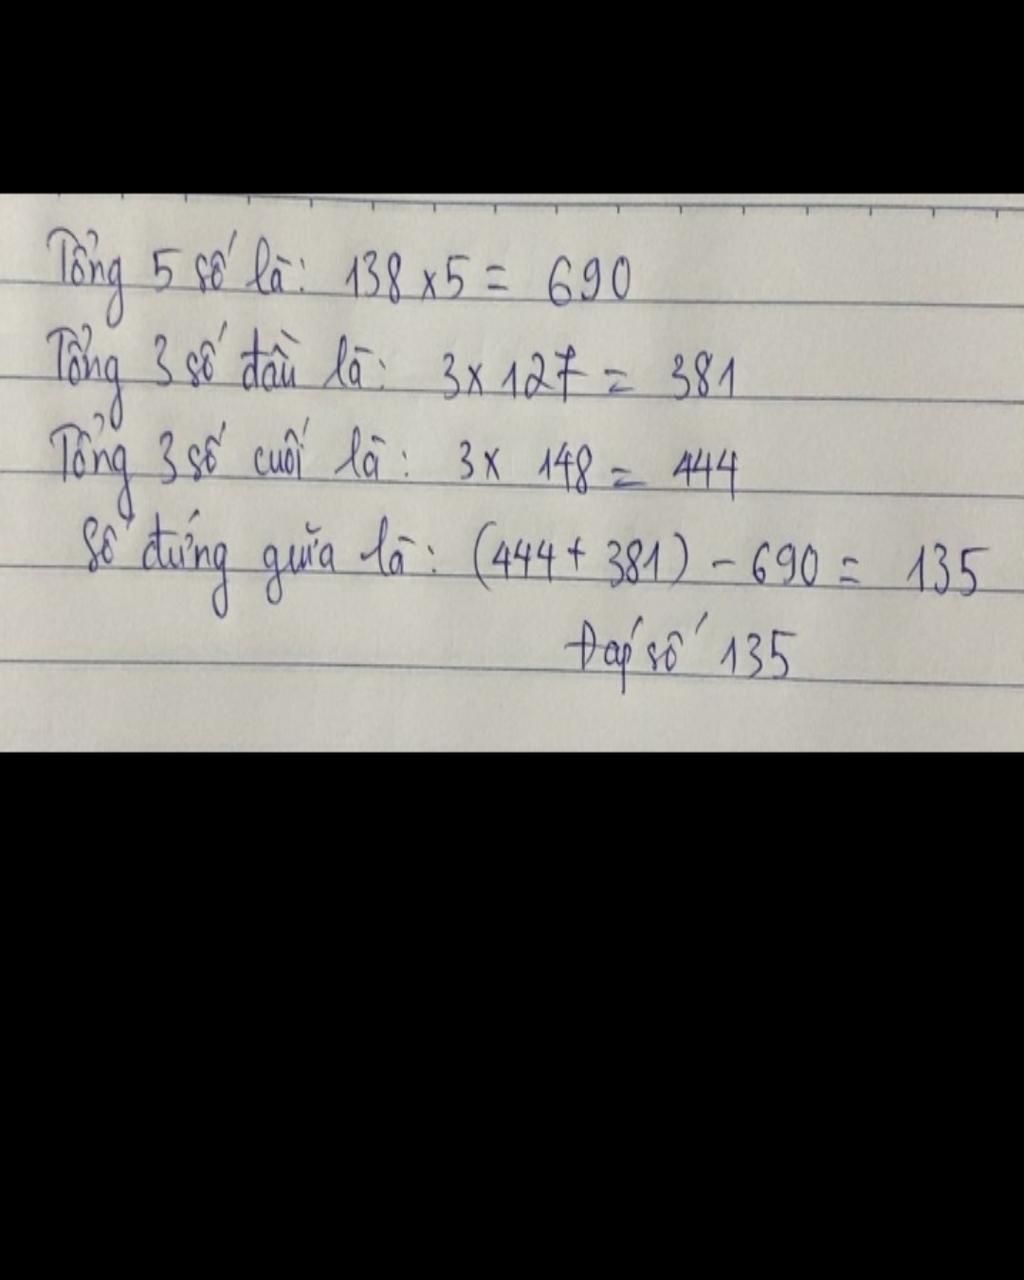 Tổng 5 số là: 138 x 5 = 690
Tổng 3 số đầu là: 3 x 127 = 381
Tổng 3 số cuối là: 3 x 148 = 444
Số đứng giữa là: (444 + 381) - 690 = 135
Đáp số 135